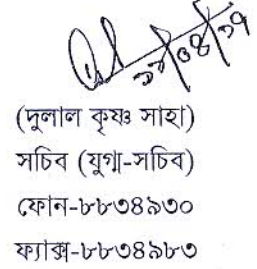 ১১/০৪/১৭
(দুলাল কৃষ্ণ সাহা)
সচিব (যুগ্ম-সচিব)
ফোন-৮৮৩৪৯৩০
ফ্যাক্স-৮৮৩৪৯৮৩